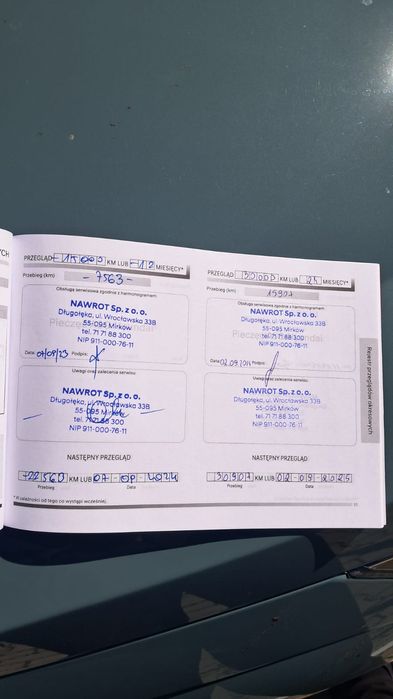 PRZEGLĄD 15000 KM LUB 12 MIESIĘCY*
Przebieg (km) - 7563 -
Obsługa serwisowa zgodnie z harmonogramem:
NAWROT Sp. z o. o.
Długołęka, ul. Wrocławska 33B
55-095 Mirków
tel. 71 71 88 300
NIP 911-000-76-11
Data: 07/09/23 Podpis:
Uwagi oraz zalecenia serwisu:
NAWROT Sp. z o. o.
Długołęka, ul. Wrocławska 33B
55-095 Mirków
tel. 71 71 88 300
NIP 911-000-76-11
NASTĘPNY PRZEGLĄD
22563 KM LUB 07-09-2024
Przebieg Data
* W zależności od tego co wystąpi wcześniej.
PRZEGLĄD 30000 KM LUB 24 MIESIĘCY*
Przebieg (km) 15907
Obsługa serwisowa zgodnie z harmonogramem:
NAWROT Sp. z o. o.
Długołęka, ul. Wrocławska 33B
55-095 Mirków
tel. 71 71 88 300
NIP 911-000-76-11
Data: 02.09.2024 Podpis:
Uwagi oraz zalecenia serwisu:
NAWROT Sp. z o. o.
Długołęka, ul. Wrocławska 33B
55-095 Mirków
tel. 71 71 88 300
NIP 911-000-76-11
NASTĘPNY PRZEGLĄD
30907 KM LUB 02-09-2025
Przebieg Data
Rejestr przeglądów okresowych